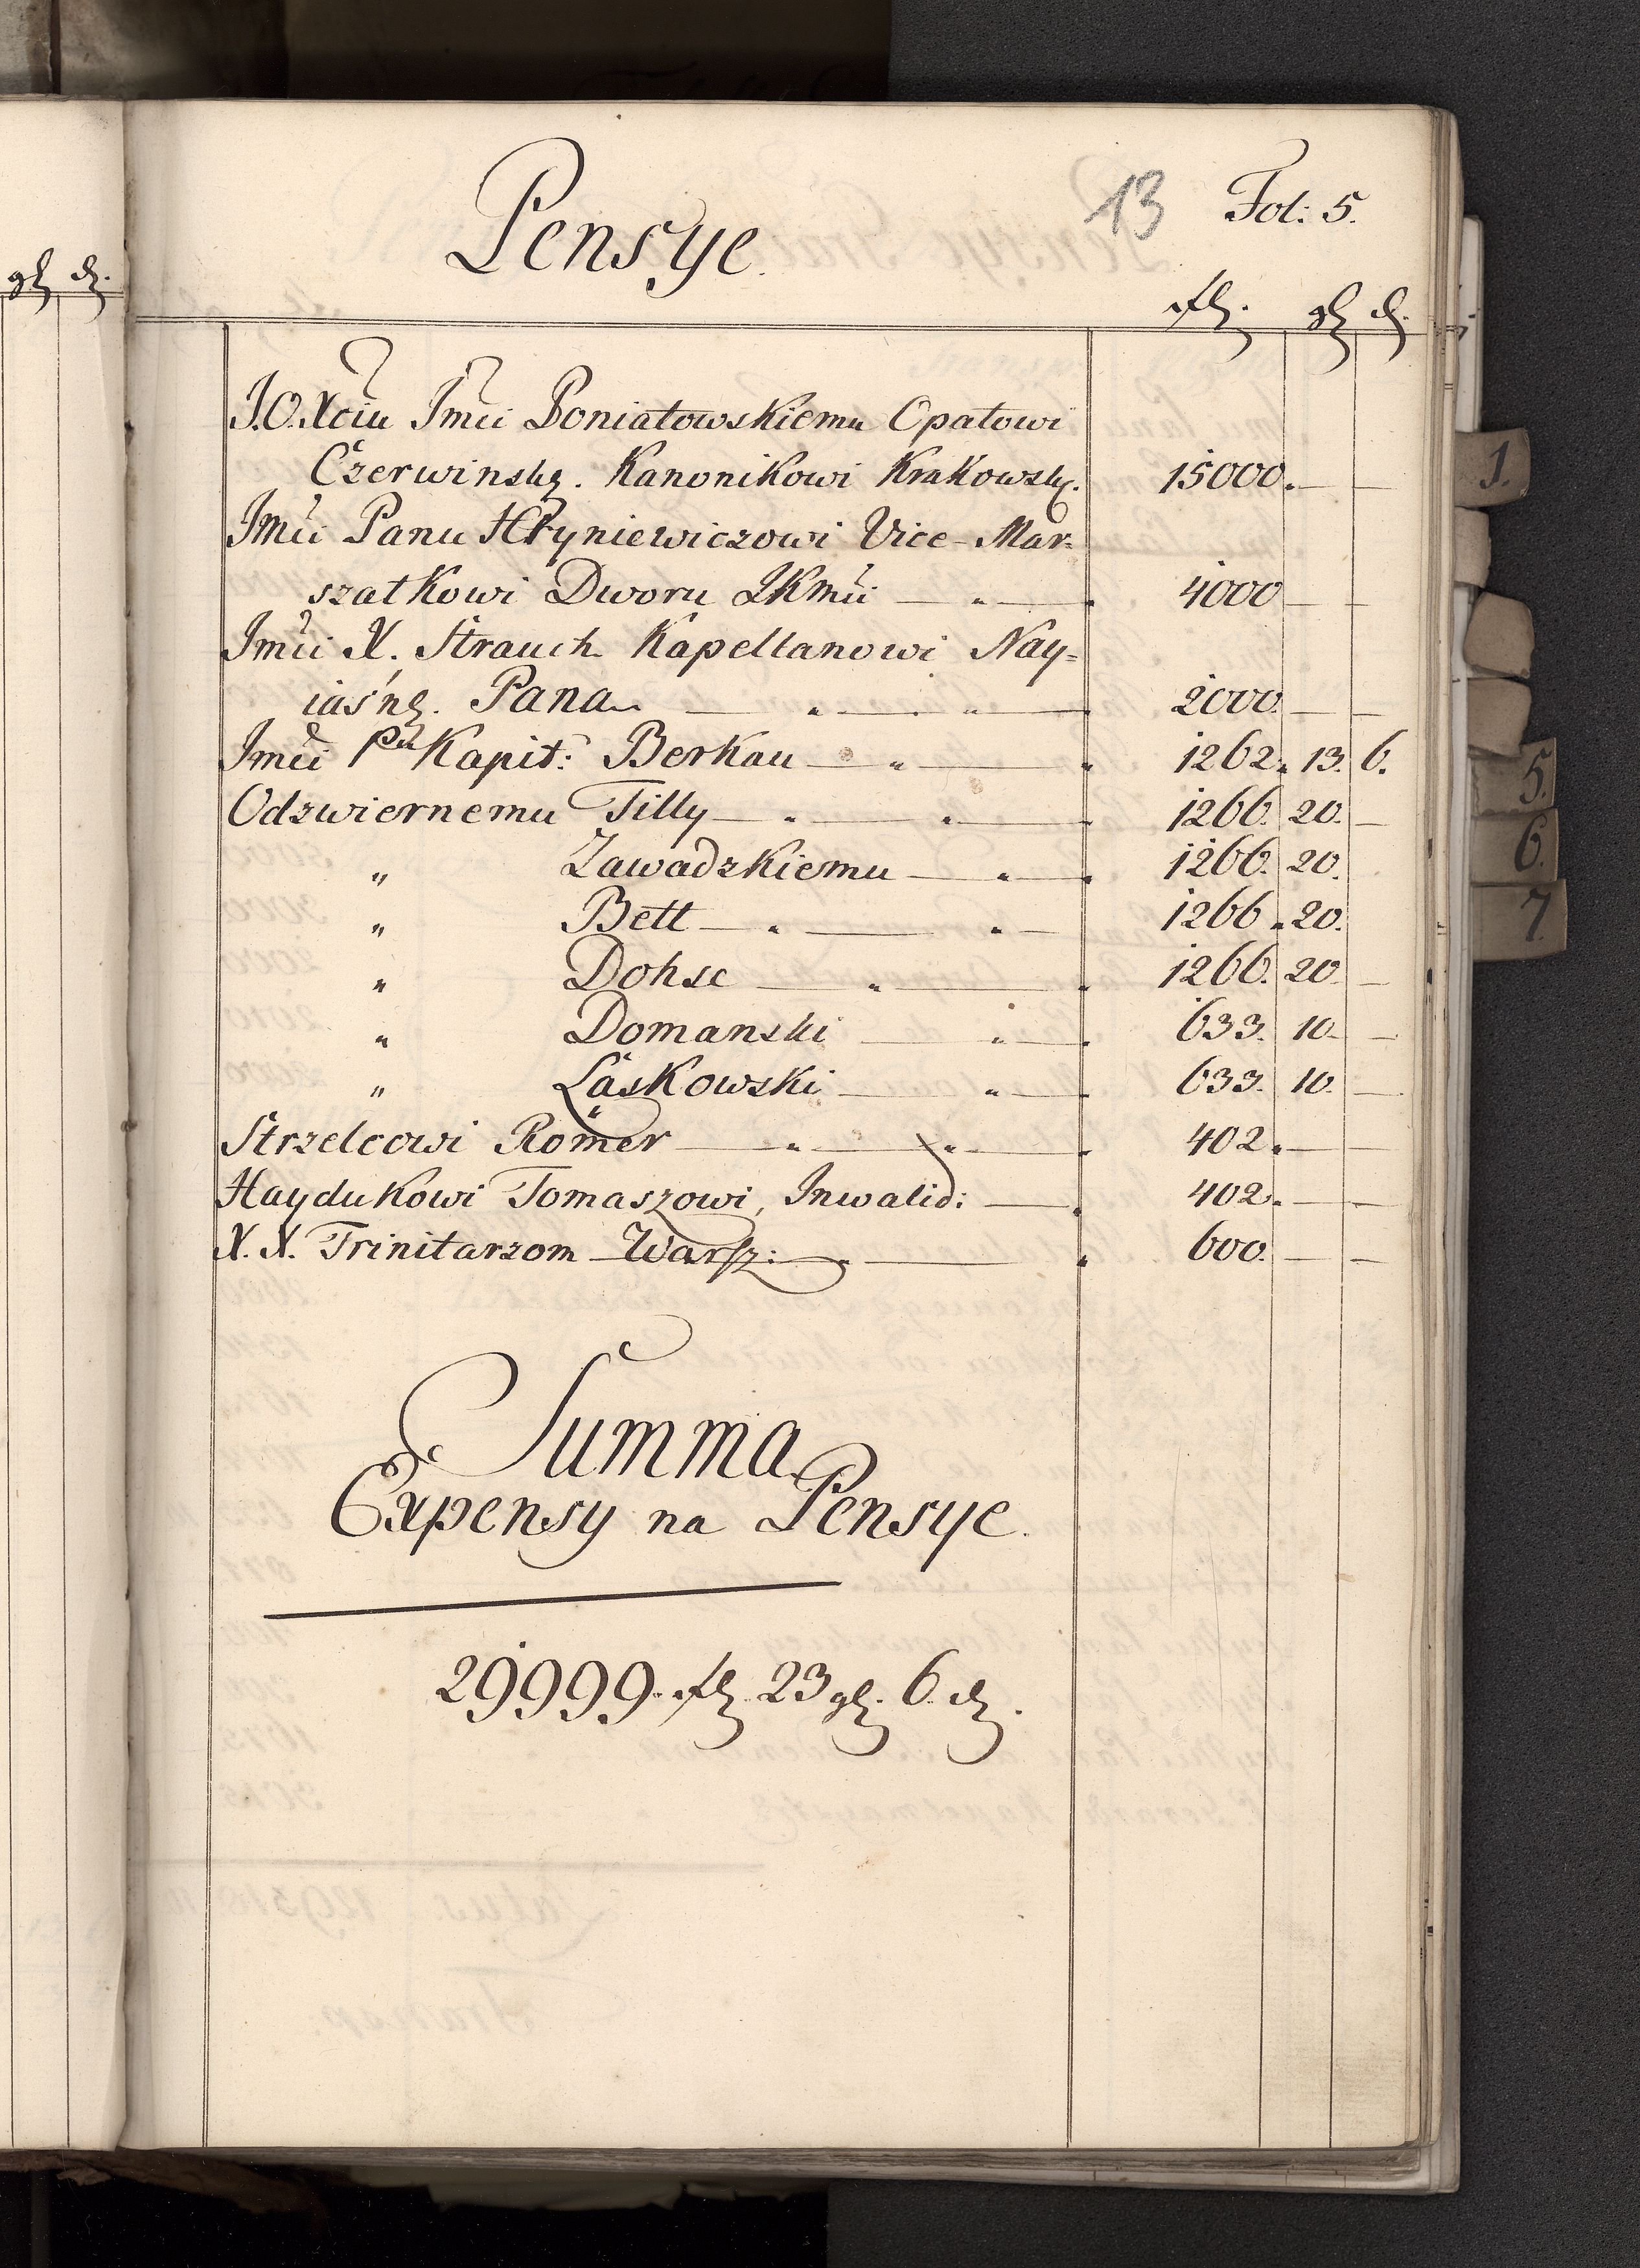 gl dl.
Pensye.
13 Fol: 5.
fl. gl. dl.
J.O. Xciu Jmći Poniatowskiemu Opatowi
Czerwinsk. Kanonikowi Krakowsk. 15000. — —
Jmći Panu Hryniewiczowi Vice-Mar=
szałkowi Dworu JKmći — " — 4000 — —
Jmći X. Strauch Kapellanowi Nay=
iaśng. Pana — " — " — 2000. — —
Jmći Pu Kapit: Berkau — " — 1262. 13. 6.
Odzwiernemu Tilly — " — " — 1266. 20. —
" Zawadzkiemu — " — 1266. 20.
" Bett — " — " — 1266. 20.
" Dohse — " — 1266. 20. —
" Domanski — " . 633. 10. —
" Laskowski — " — 633. 10. —
Strzelcowi Römer — " — " — 402. — —
Haydukowi Tomaszowi, Inwalid: — 402. — —
X. X. Trinitarzom Warsz: — 600. — —
Summa
Expensy na Pensye.
29999. fl. 23 gl. 6. dl.
1.
5.
6.
7.